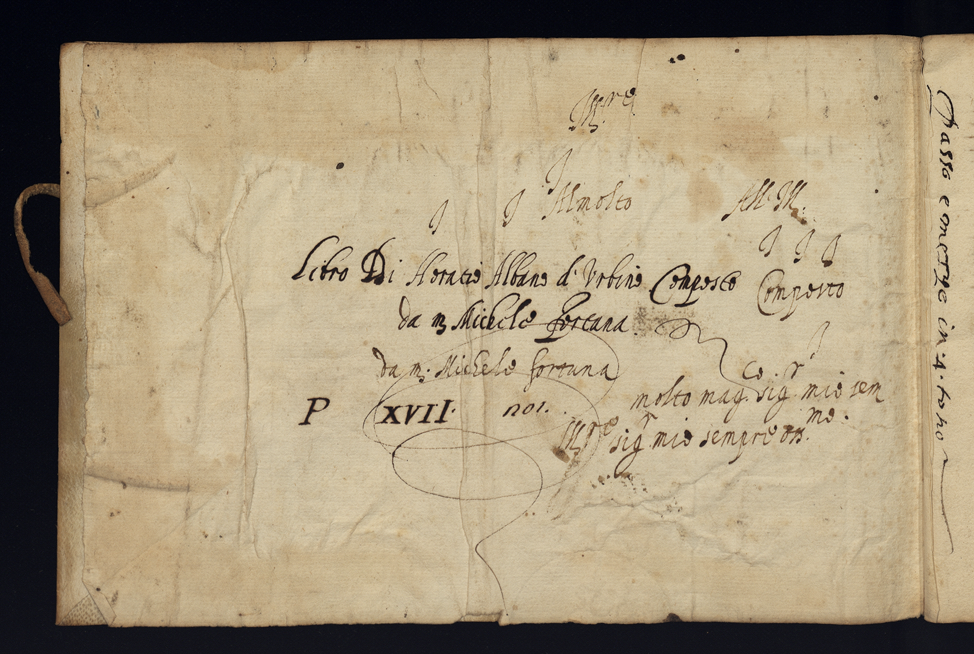 M.re
Al molto All. M.
Libro Di Horatio Albano d' Urbino Composto Composto
da m Michele Fortana
da m. Michele fortana
P XVII. nos.
molto mag.co sig.r mio sem
M.re sig.r mio sempre oss.mo
Passo e mezzo in 4 tono